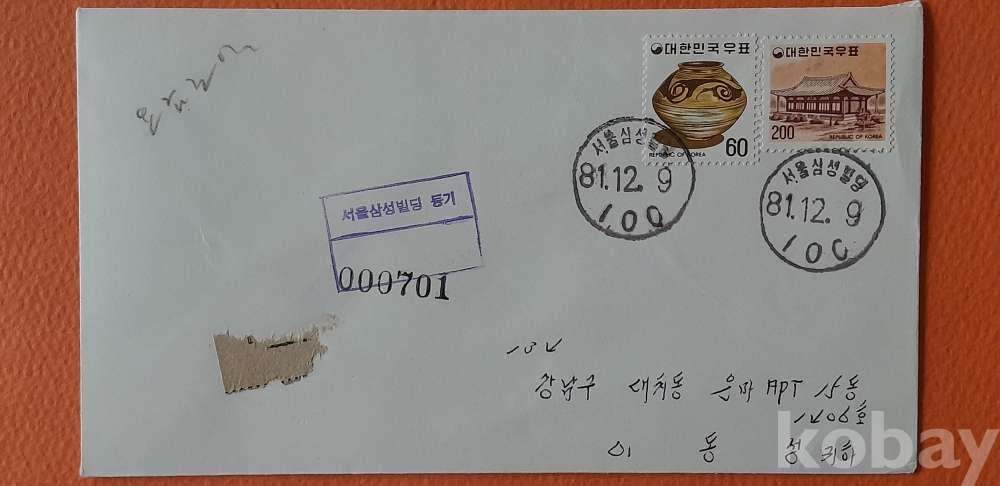 대한민국우표
60
REPUBLIC OF KOREA
대한민국우표
200
REPUBLIC OF KOREA
서울삼성빌딩
81.12.9
100
서울삼성빌딩
81.12.9
100
서울삼성빌딩 등기
000701
134
강남구 대치동 은마 APT 동
1406호
이 동 성 귀하
kobay